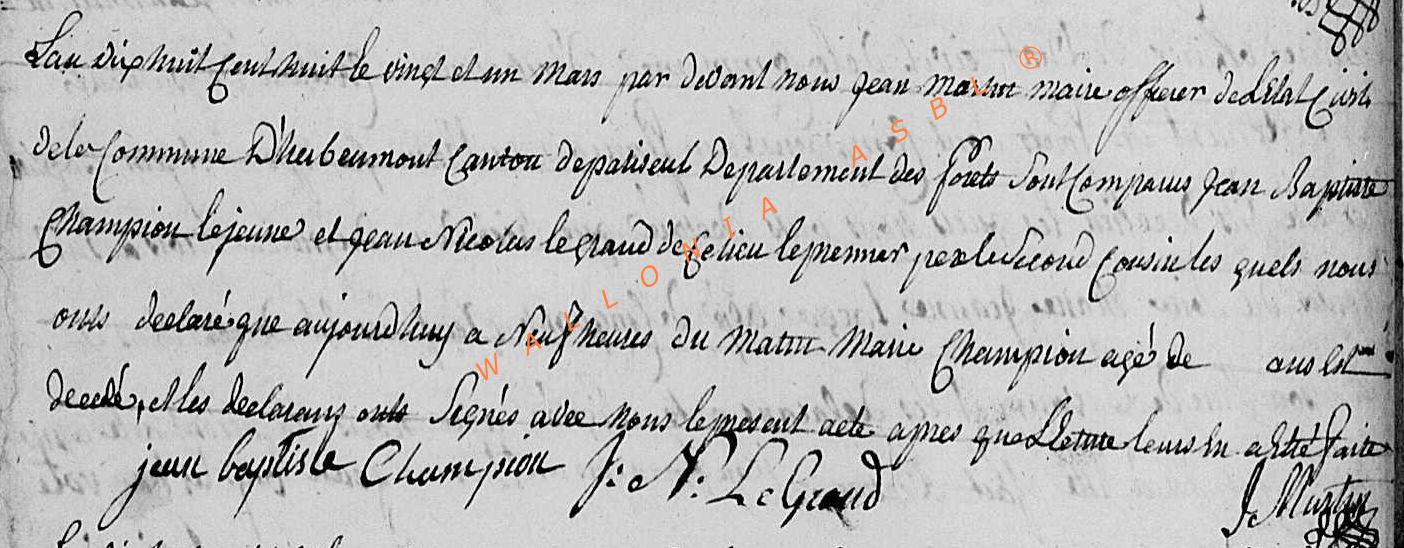 L'an dix huit Cent huit le vingt et un mars par devant nous jean martin maire officier de L'Etat Civil
de la Commune D'herbeumont Canton de paliseul Département des forets Sont Comparus jean Baptiste
Champion le jeune et jean Nicolas le grand de ce lieu le premier pere le Second Cousin les quels nous
onts declaré que aujourdhuy a Neuf heures du matin Marie Champion agé de ans Est
decedé, et les declarans onts Signés avec nous le present acte apres que Lecture leurs En a Eté faite
jean baptiste Champion J: N: LeGrand
J Martin
WALLONIA ASBL ®